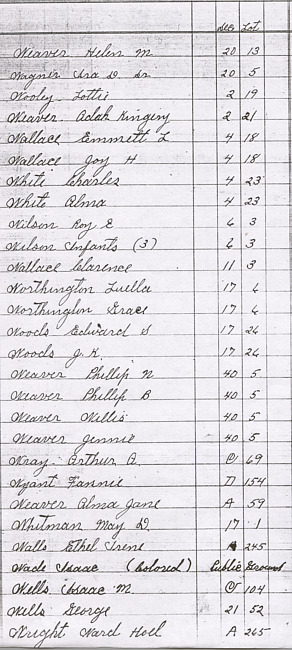 Sec Lot
Weaver Helen M 20 13
Wagner Ira D Sr 20 5
Wooley Lottie 2 19
Weaver Adah Kingery 2 21
Wallace Emmett L 4 18
Wallace Joy H 4 18
White Charles 4 23
White Alma 4 23
Wilson Roy E 6 3
Wilson Infants (3) 6 3
Wallace Clarence 11 3
Worthington Luella 17 6
Worthington Grace 17 6
Woods Edward S 17 26
Woods J. K. 17 26
Weaver Phillip N 40 5
Weaver Phillip B 40 5
Weaver Willis 40 5
Weaver Jennie 40 5
Wray Arthur A. 69
Wyant Fannie D 154
Weaver Alma Jane A 59
Whitman May D. 17 1
Walls Ethel Irene A 245
Wade Isaac (Colored) Public Ground
Wells Isaac M. 104
Wells George 21 52
Wright Ward Hoel A 265